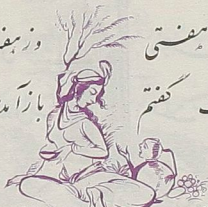 هفتی وز هفت
گفتم باز آمد